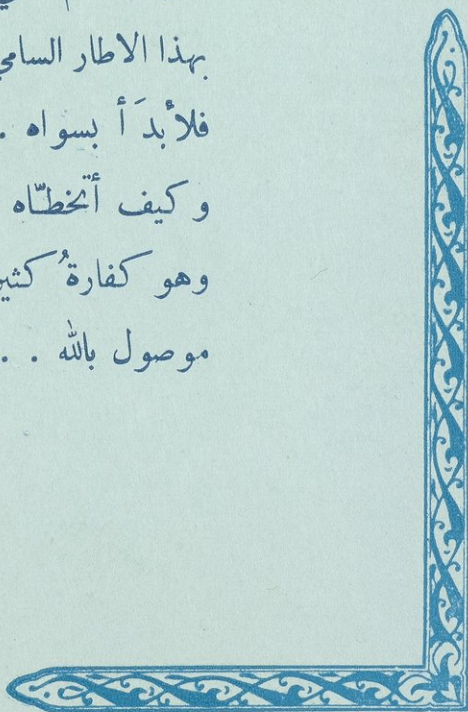 بهذا الاطار السامي
فلأبدَأ بسواه .
وكيف أتخطّاه
وهو كفارةُ كثير
موصول بالله . .